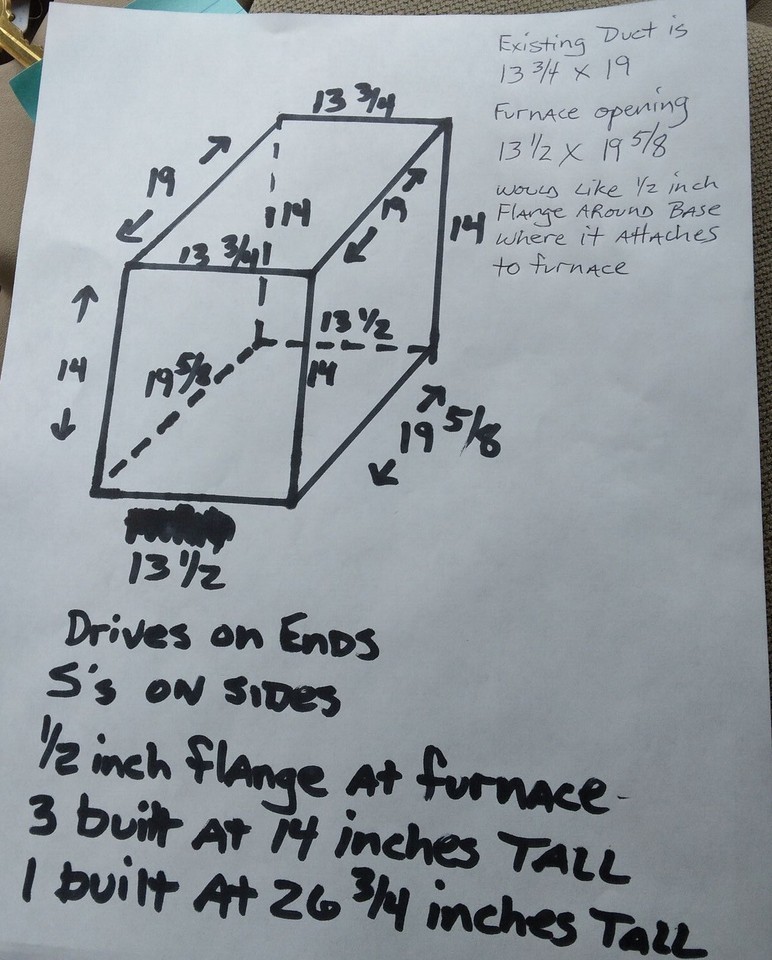 Existing Duct is
13 3/4 x 19
Furnace opening
13 1/2 x 19 5/8
would like 1/2 inch
Flange Around Base
where it Attaches
to furnace
13 3/4
19
14
19
14
13 3/4
13 1/2
14
19 5/8
14
19 5/8
13 1/2
Drives on Ends
S's on sides
1/2 inch flange At furnace
3 built At 14 inches TALL
1 built At 26 3/4 inches TALL